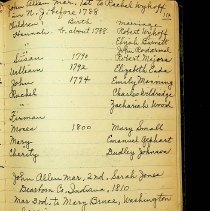 John Allen mar. 1st to Rachel Wyckoff
in N.J. before 1788
Children Birth marriage
Hannah b. about 1788 Robert Wyckoff
Elijah Barnett
John Rodarmel
Susan 1790 Robert Majors
William 1792 Elizabeth Eads
John 1794 Emily Manning
Rachel Charles
Zachariah Wood
Firman
Moses 1800 Mary Small
Mary Emanuel Gephart
Charity Dudley Johnson
John Allen mar, 2nd, Sarah Jones
Dearborn Co, Indiana, 1810
mar 3rd to Mary Bruce, Washington